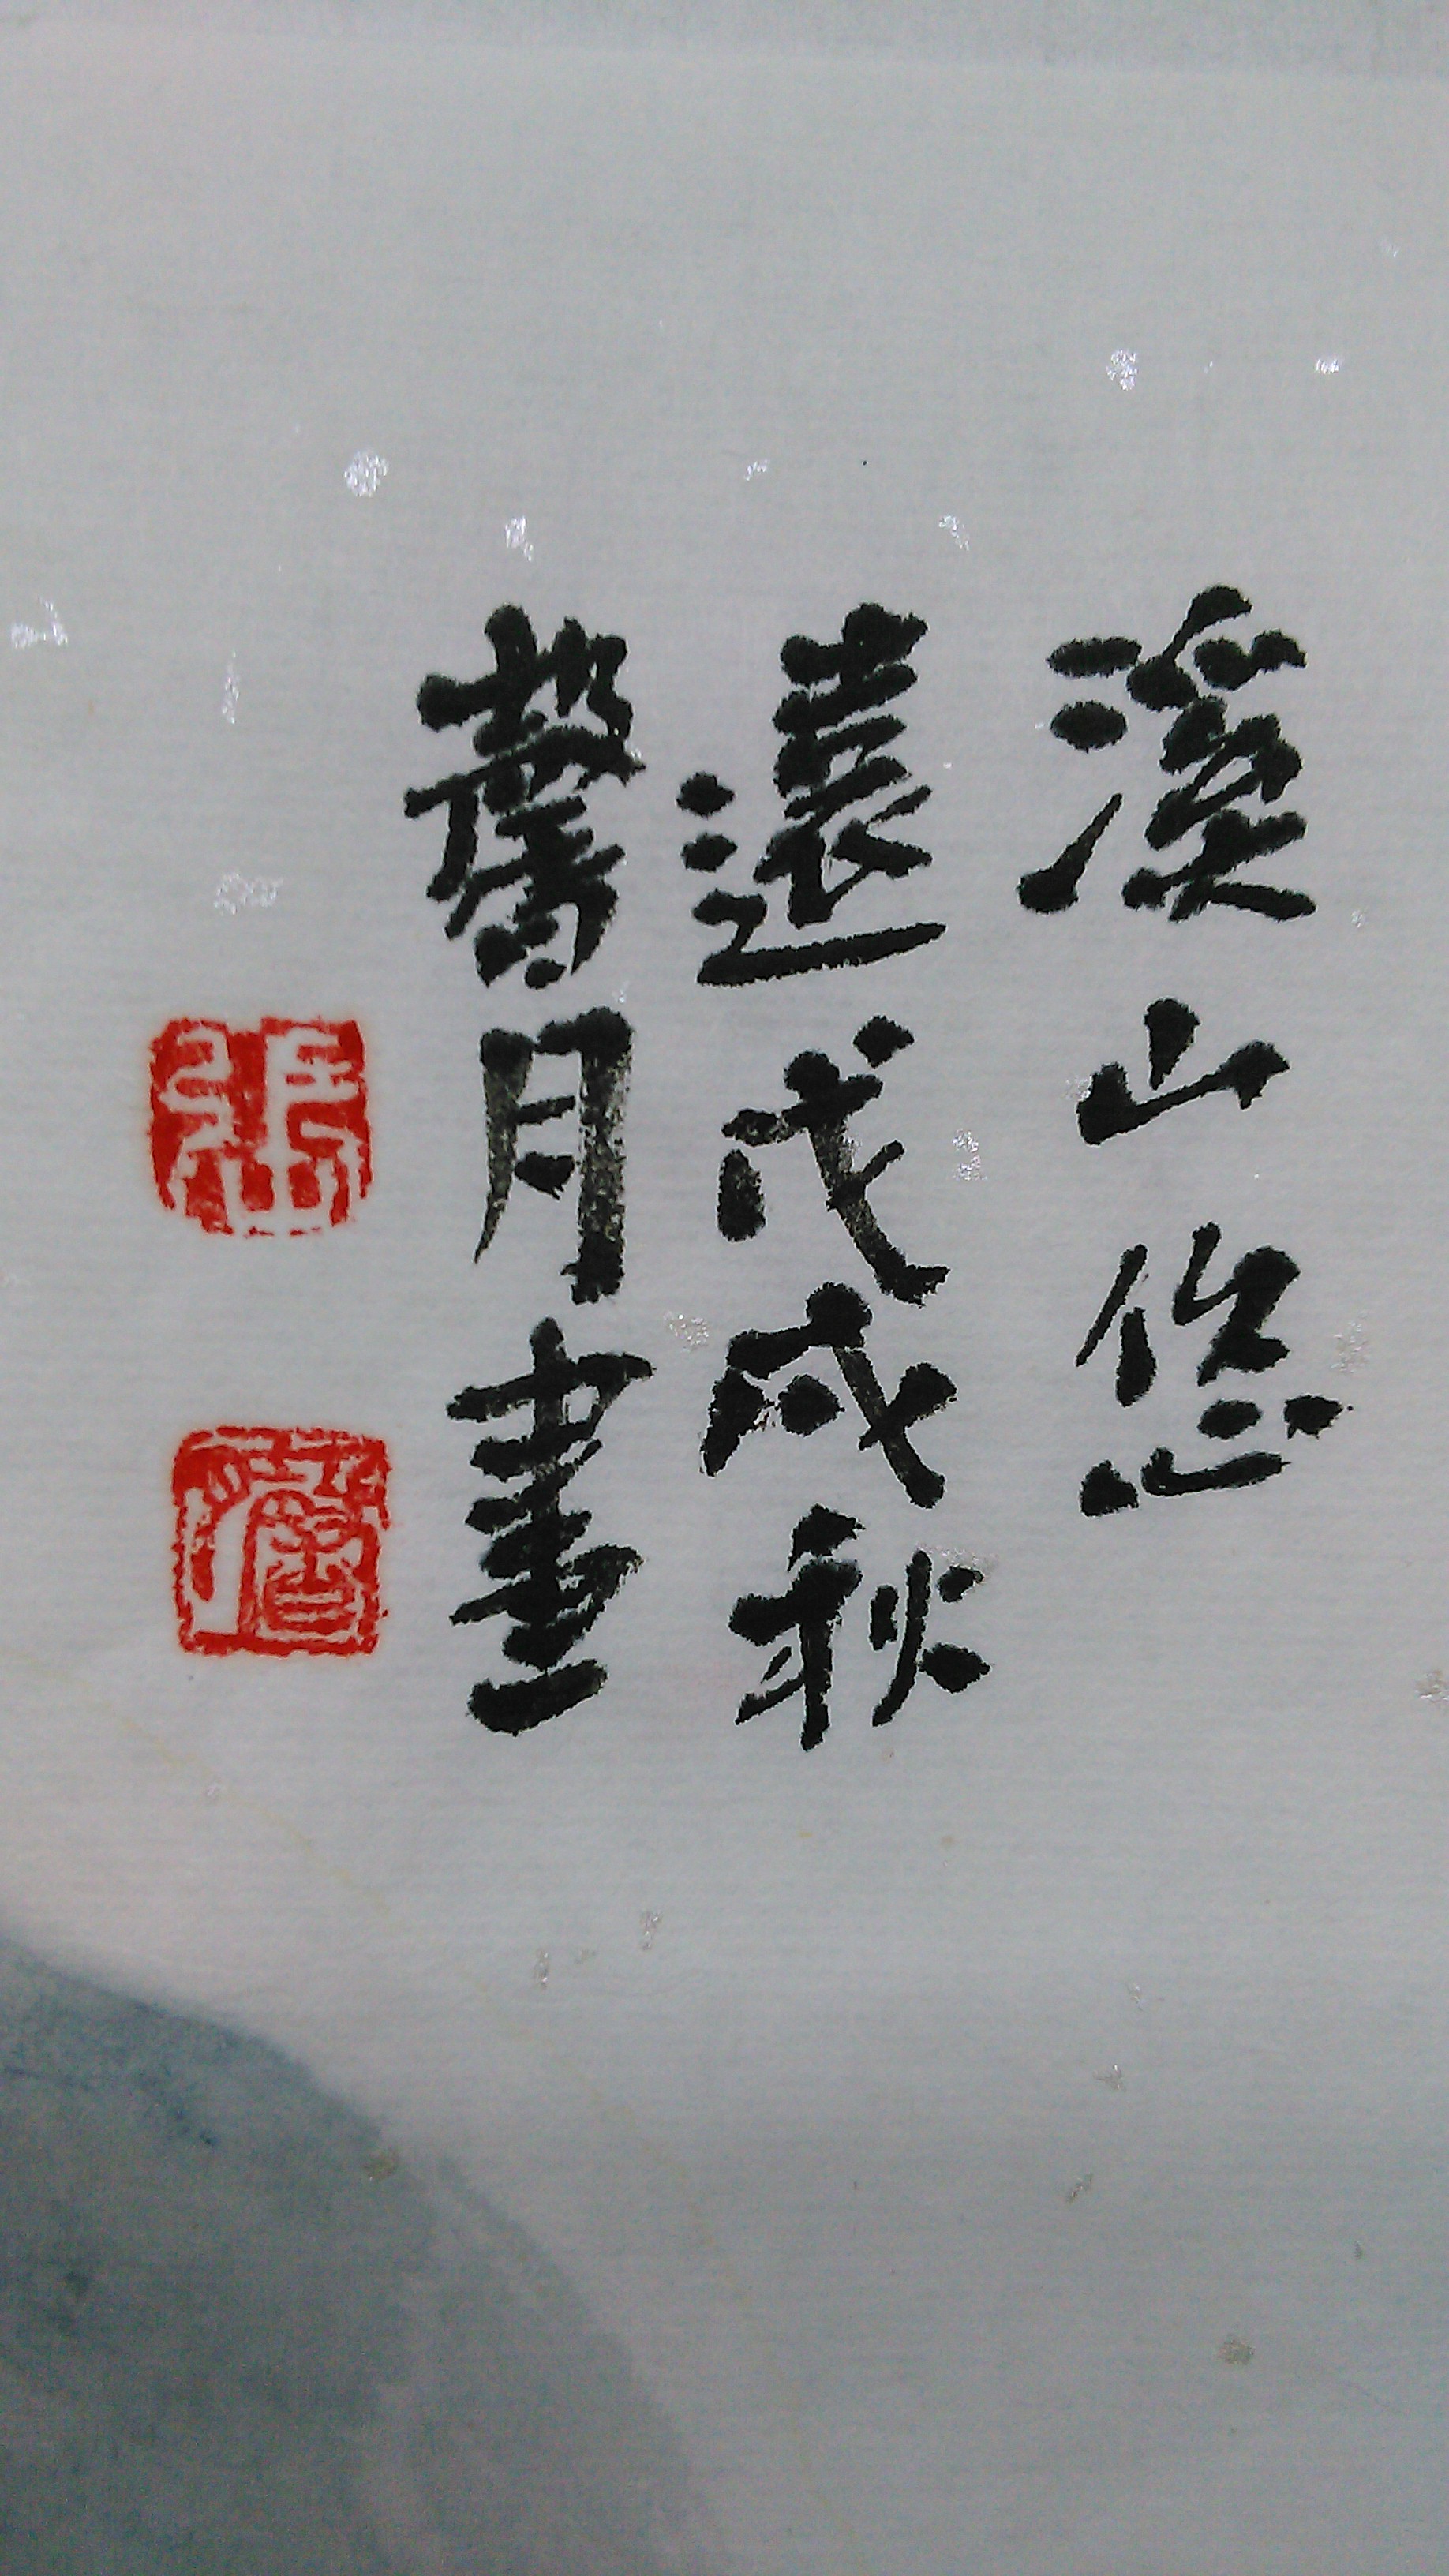 溪山悠
遠戊戌秋
馨月畫
張